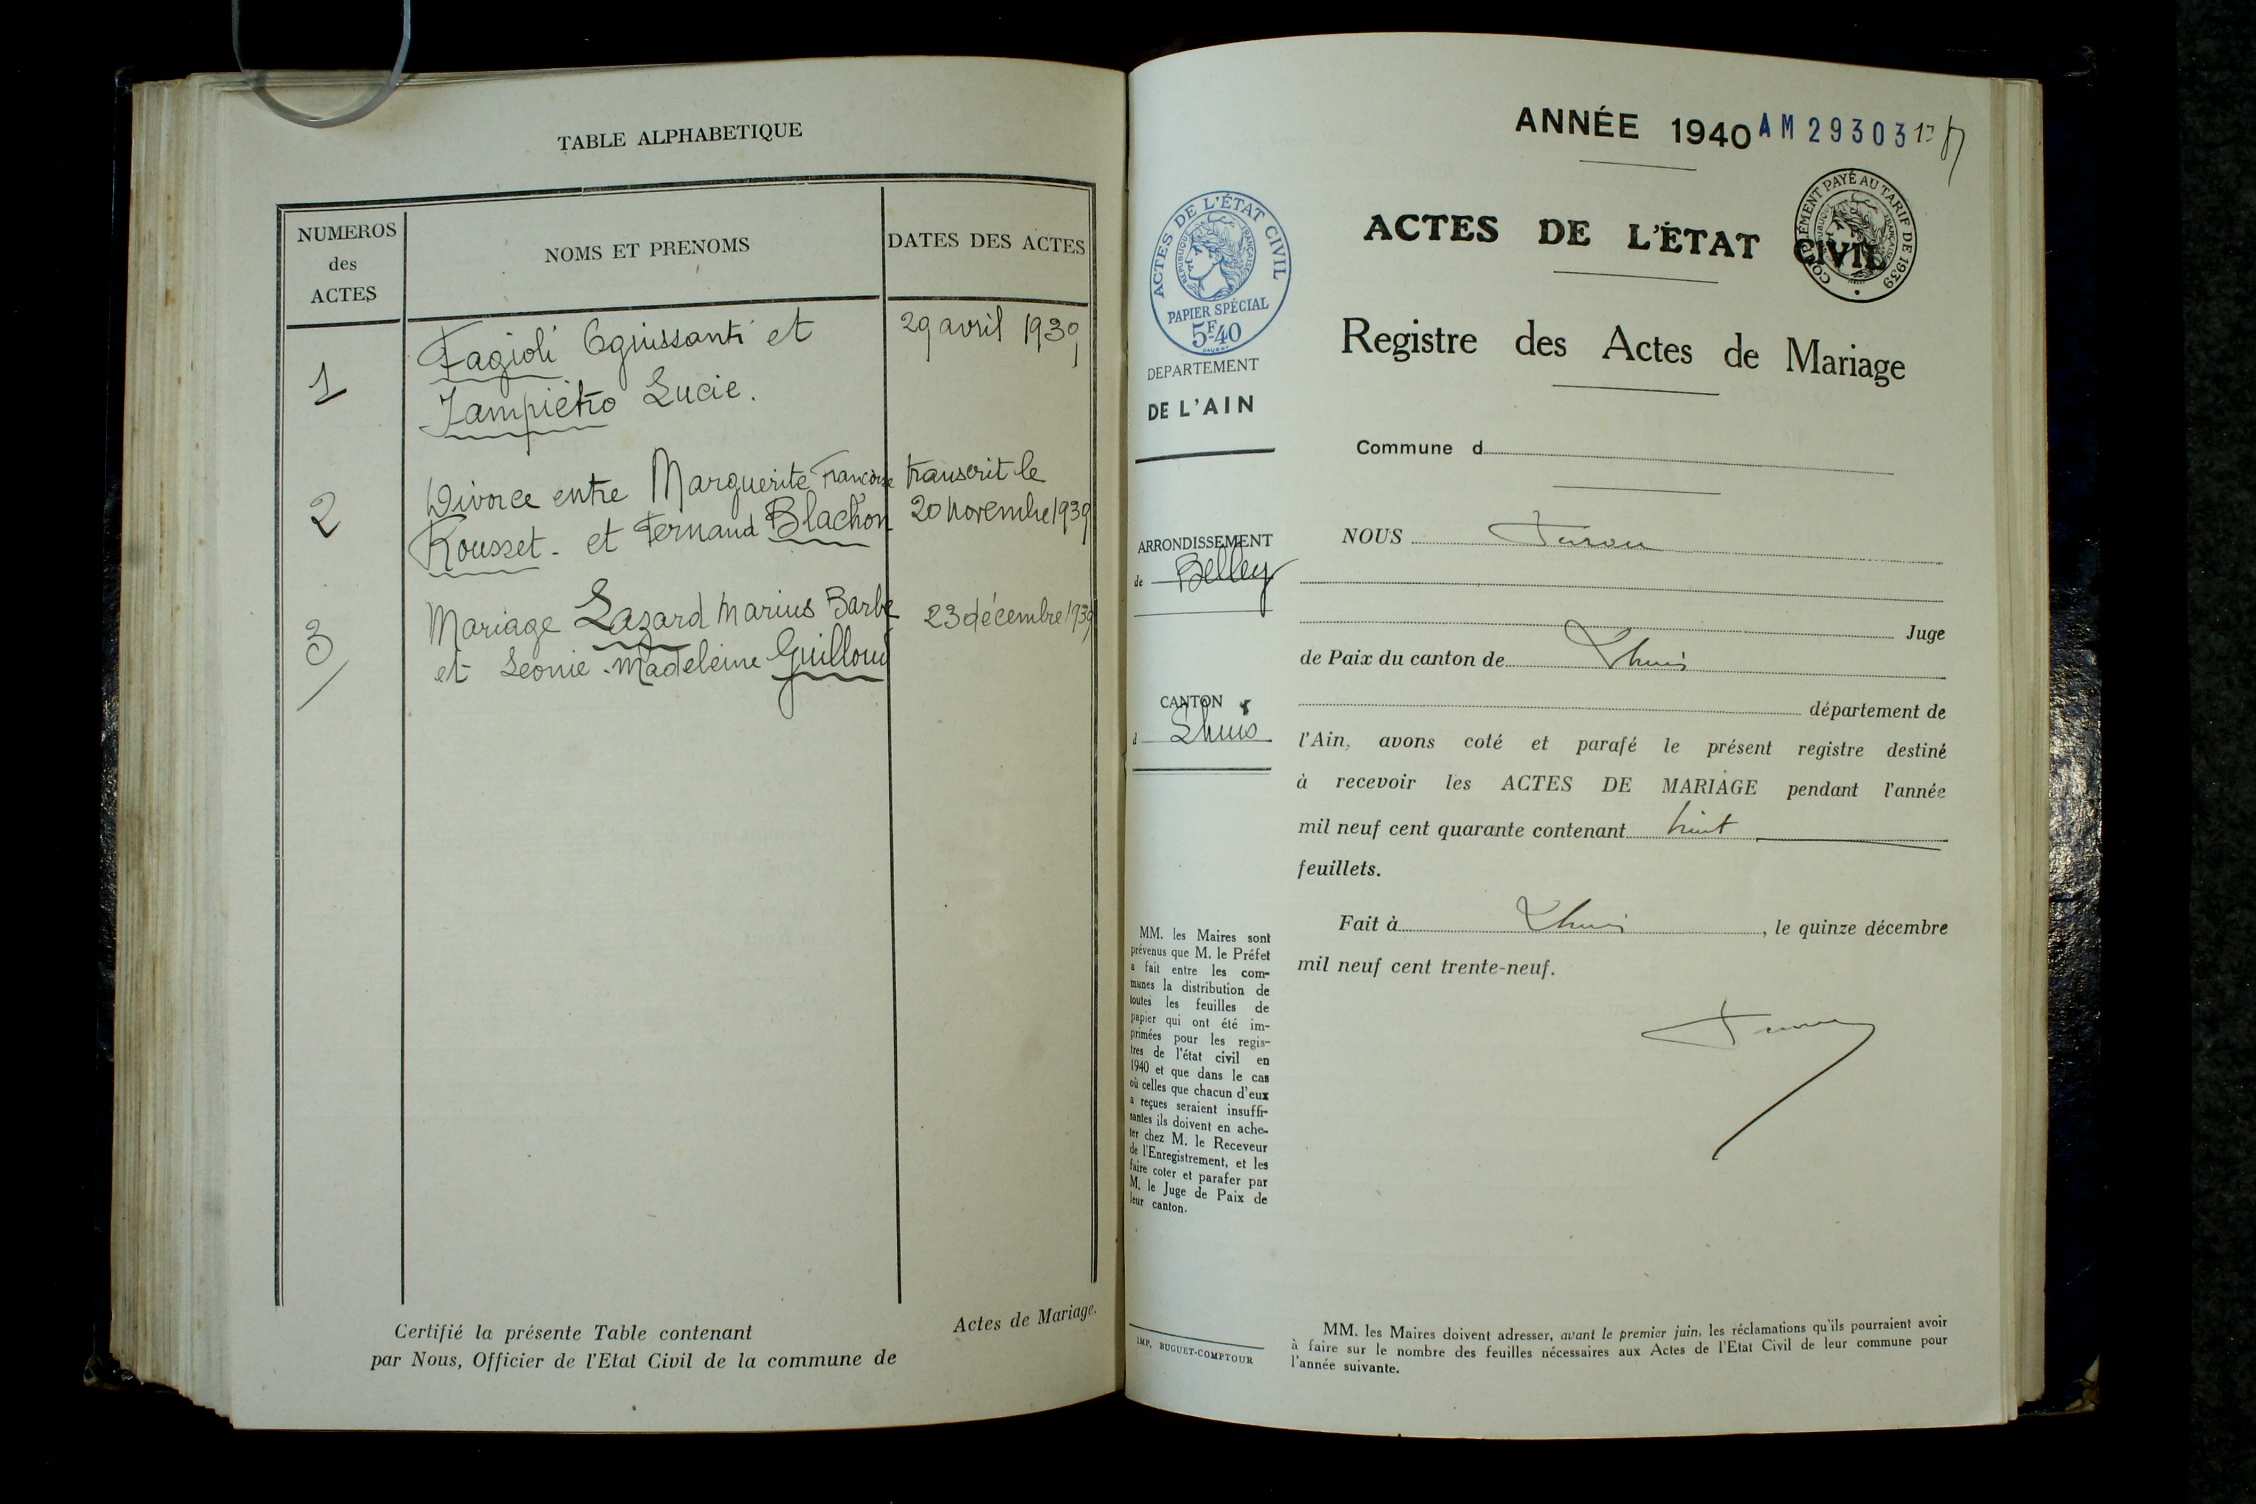 TABLE ALPHABETIQUE
NUMEROS
des
ACTES
NOMS ET PRENOMS
DATES DES ACTES
1
Fagioli et
Lucie.
29 avril 1939
2
Divorce entre Marguerite Françoise
Rousset - et Fernand Blachon
transcrit le
20 novembre 1939
3
Mariage Lazard Marius Barbe
et Leonie-Madeleine Guilloud
23 décembre 1939
Certifié la présente Table contenant
par Nous, Officier de l'Etat Civil de la commune de
Actes de Mariage.
ANNÉE 1940
AM 29303
ACTES DE L'ÉTAT CIVIL
COMPLÉMENT PAYÉ AU TARIF DE 1939
RÉPUBLIQUE FRANÇAISE
Registre des Actes de Mariage
ACTES DE L'ÉTAT CIVIL
RÉPUBLIQUE FRANÇAISE
PAPIER SPÉCIAL
5F-40
DEPARTEMENT
DE L'AIN
ARRONDISSEMENT
de Belley
CANTON
d Lhuis
MM. les Maires sont
prévenus que M. le Préfet
a fait entre les com-
munes la distribution de
toutes les feuilles de
papier qui ont été im-
primées pour les regis-
tres de l'état civil en
1940 et que dans le cas
où celles que chacun d'eux
a reçues seraient insuffi-
santes ils doivent en ache-
ter chez M. le Receveur
de l'Enregistrement, et les
faire coter et parafer par
M. le Juge de Paix de
leur canton.
IMP. BUGUET-COMPTOUR
Commune d
NOUS
Juge
de Paix du canton de Lhuis
département de
l'Ain, avons coté et parafé le présent registre destiné
à recevoir les ACTES DE MARIAGE pendant l'année
mil neuf cent quarante contenant huit
feuillets.
Fait à Lhuis, le quinze décembre
mil neuf cent trente-neuf.
MM. les Maires doivent adresser, avant le premier juin, les réclamations qu'ils pourraient avoir
à faire sur le nombre des feuilles nécessaires aux Actes de l'Etat Civil de leur commune pour
l'année suivante.